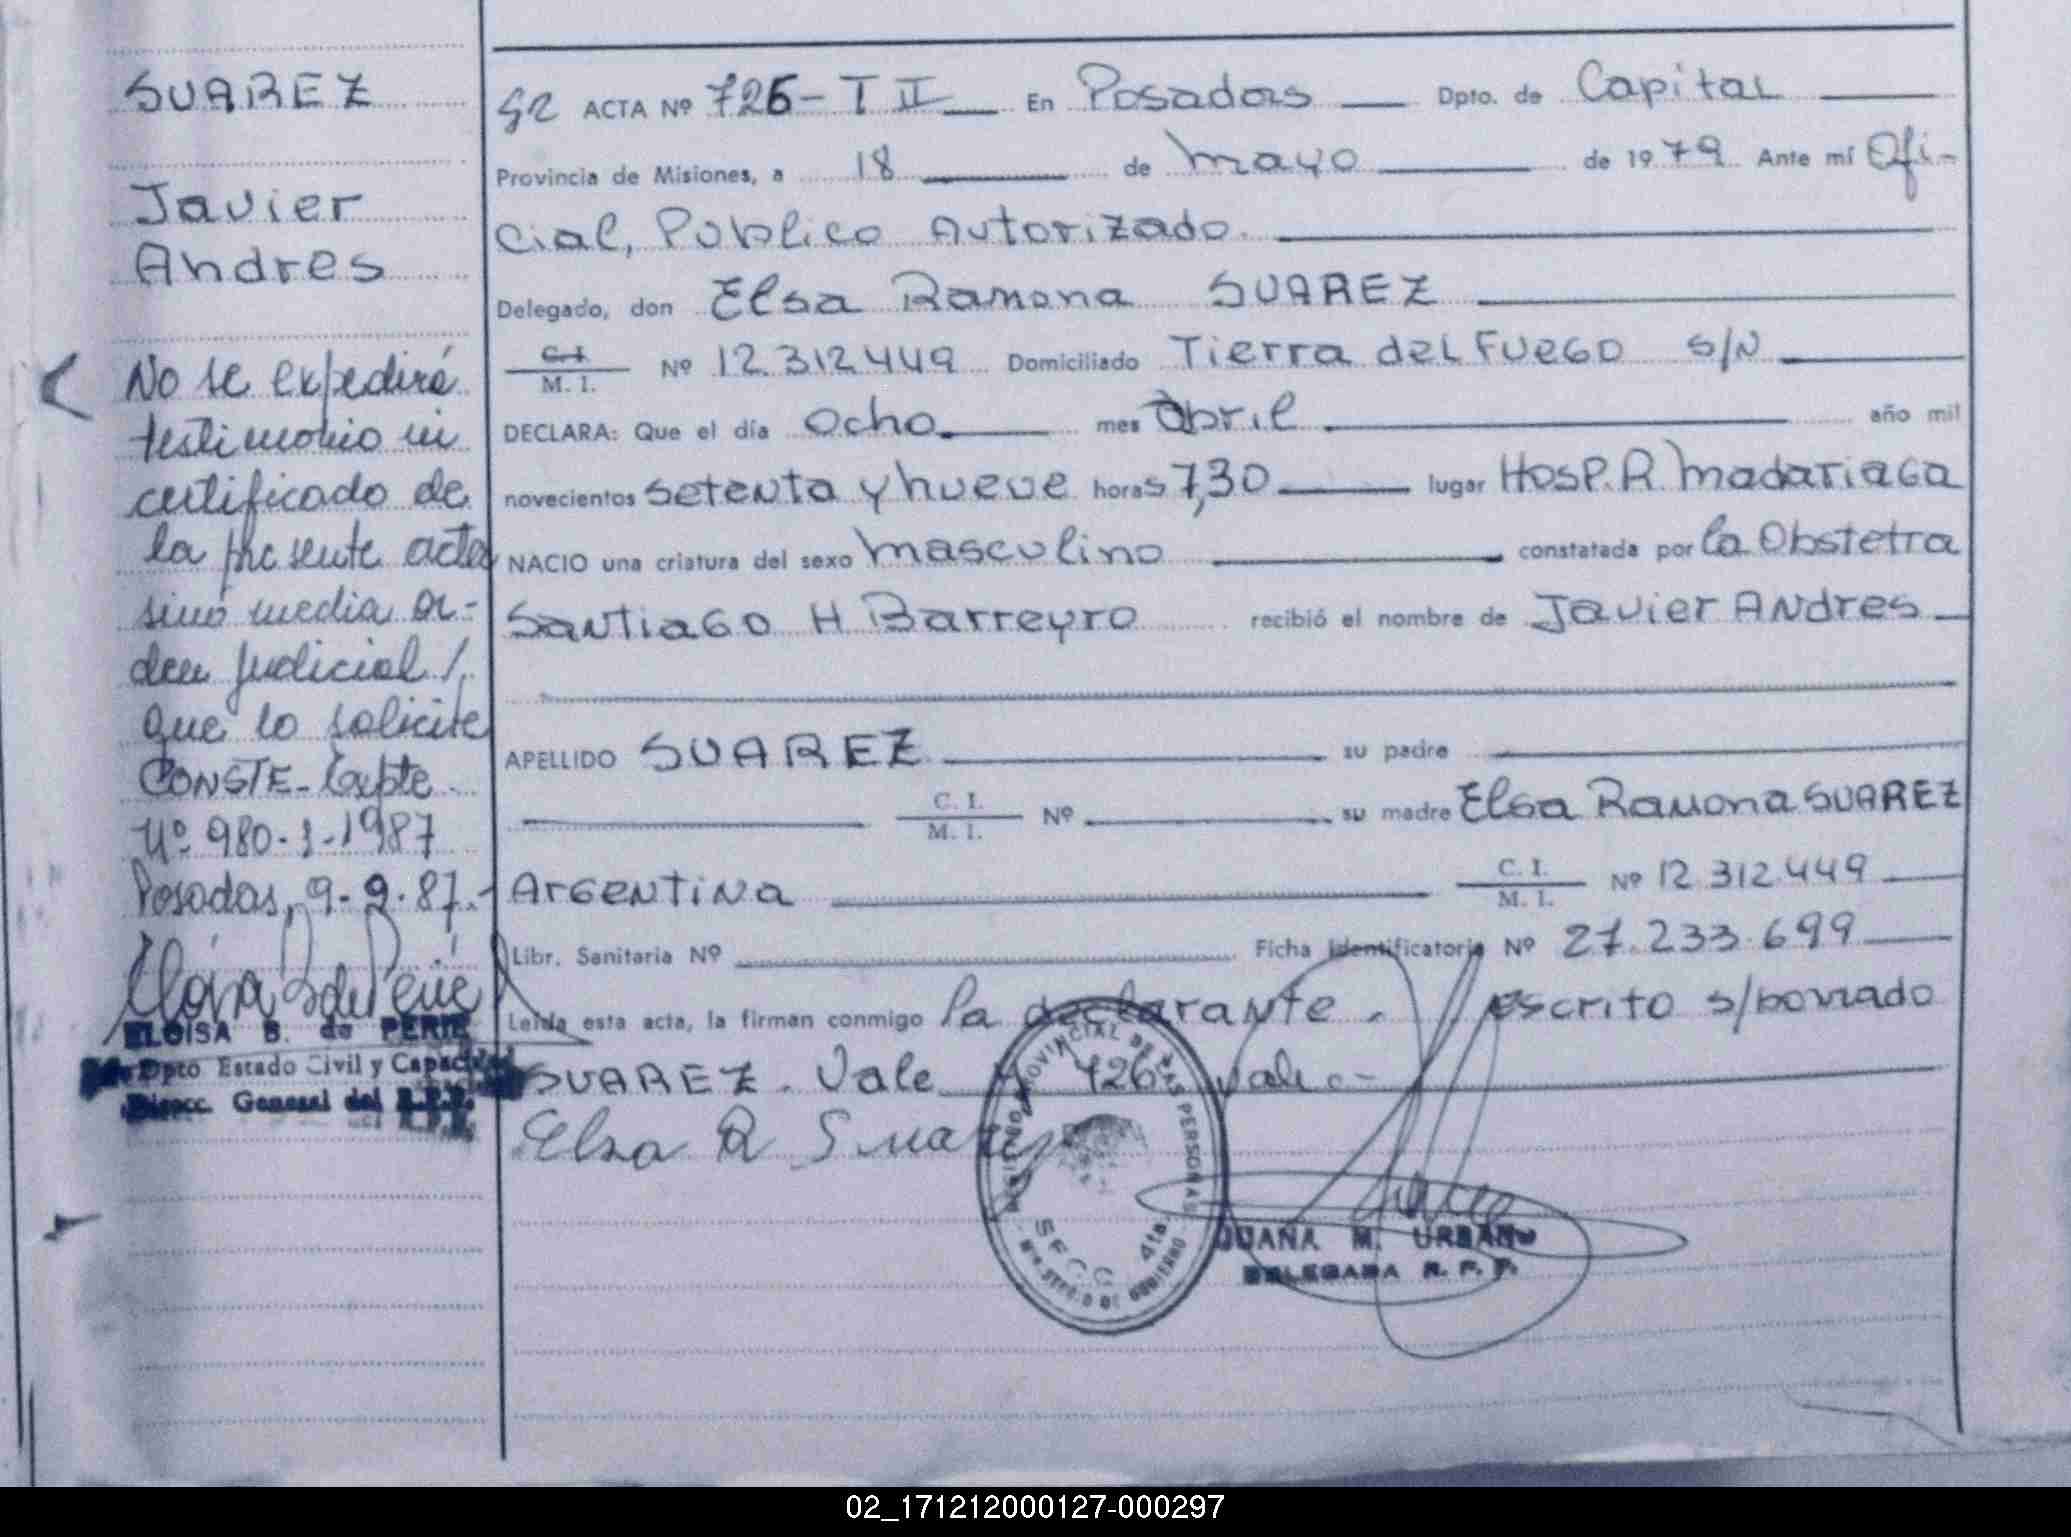 SUAREZ
Javier
Andres
No se expedirá
testimonio ni
certificado de
la presente acta
sino media or-
den Judicial /.
que lo solicite
CONSTE- Expte
Nº 980-1-1987
Posadas, 9-9-87.-
ELOISA B. de PERIE
Dpto Estado Civil y Capacidad
Direcc. General del R.P.P.
ACTA Nº 726-T II En Posadas Dpto. de Capital
Provincia de Misiones, a 18 de mayo de 1979 Ante mí Ofi-
cial, Publico Autorizado.
Delegado, don Elsa Ramona SUAREZ
C.I. / M. I. Nº 12.312.449 Domiciliado Tierra del FUEGO S/N
DECLARA: Que el día Ocho mes Abril año mil
novecientos setenta y nueve horas 7,30 lugar HOSP. R. Madariaga
NACIO una criatura del sexo masculino constatada por la Obstetra
Santiago H Barreyro recibió el nombre de Javier Andres
APELLIDO SUAREZ su padre
C. I. / M. I. Nº su madre Elsa Ramona SUAREZ
Argentina C. I. / M. I. Nº 12.312.449
Libr. Sanitaria Nº Ficha Identificatoria Nº 27.233.699
Leída esta acta, la firman conmigo la declarante. escrito s/borrado
SUAREZ. Vale y 726 vale.-
Elsa R Suarez
REGISTRO PROVINCIAL DE LAS PERSONAS
SECC. 4ta.
JUANA M. URBAN
DELEGADA R. P. P.
02_171212000127-000297